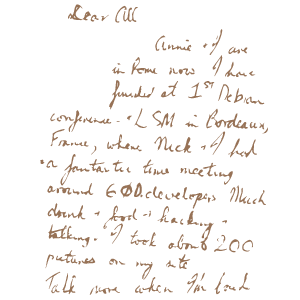 Dear All
Annie + I are
in Rome now I have
funded at 1ST Debian
conference - LSM in Bordeaux,
France, where Nick + I had
a fantastic time meeting
around 600 developers Much
drink + food + hacking +
talking. I took about 200
pictures on my site
Talk more when I'm